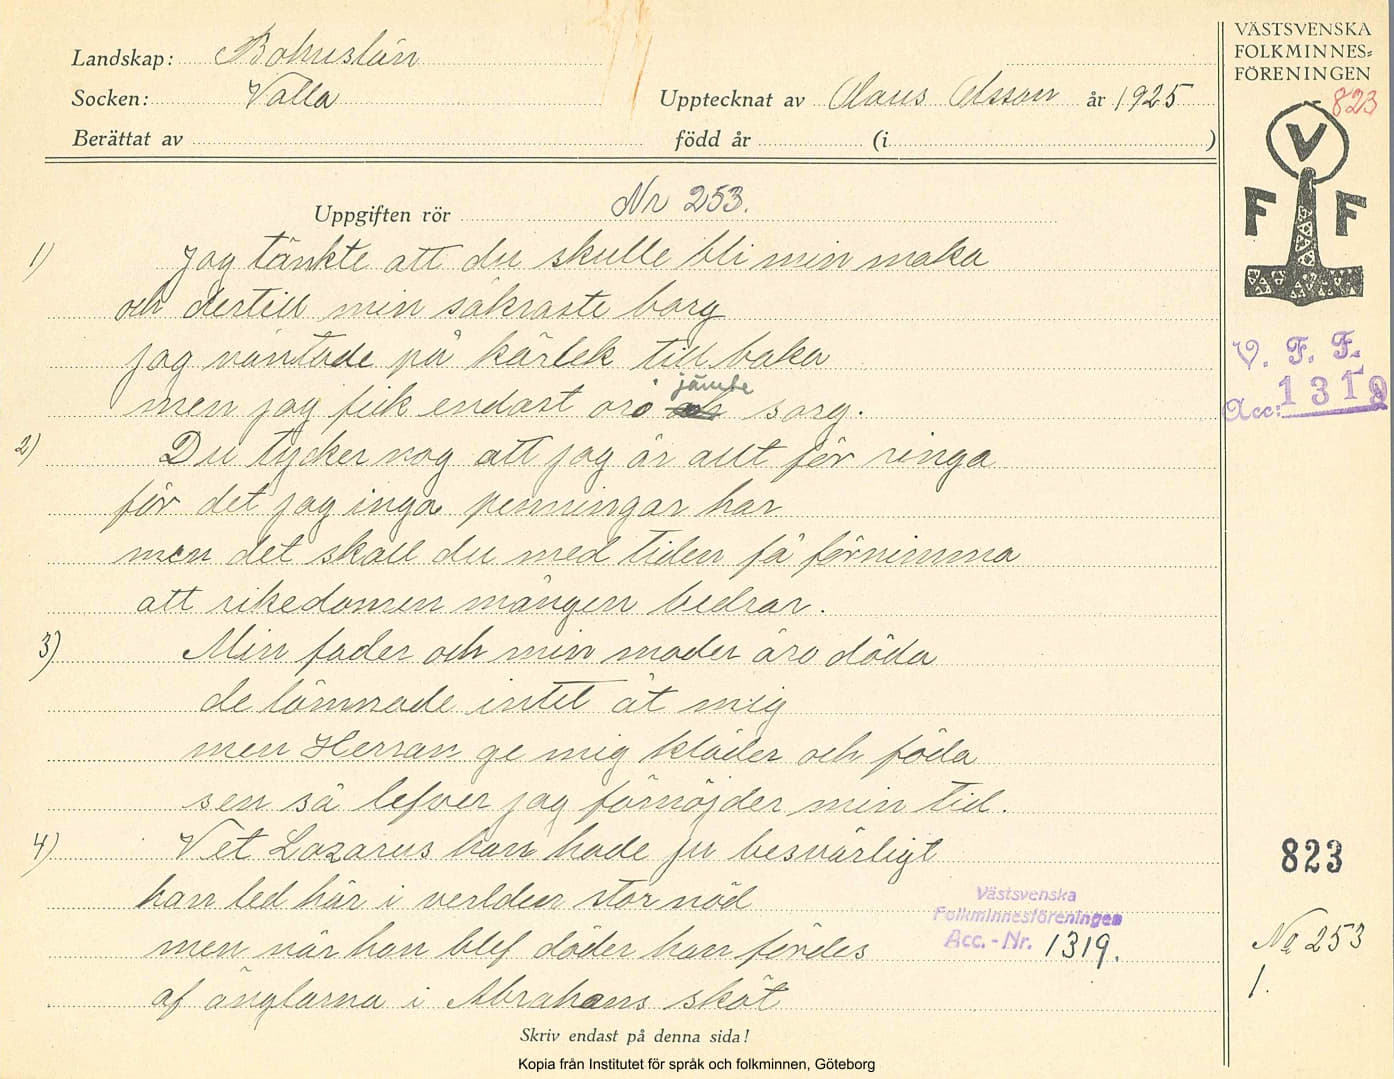 Landskap: Bohuslän
Socken: Valla
Upptecknat av Claus Olsson år 1925
Berättat av
född år (i )
VÄSTSVENSKA
FOLKMINNES=
FÖRENINGEN
823
V
F F
Uppgiften rör Nr 253.
1) Jag tänkte att du skulle bli min maka
och dertill min säkraste borg
jag väntade på kärlek tillbaka
men jag fick endast oro jämte sorg.
2) Du tycker nog att jag är allt för ringa
för det jag inga penningar har
men det skall du med tiden få förnimma
att rikedomen mången bedrar.
3) Min fader och min moder äro döda
de lämnade intet åt mig
men Herran ge mig kläder och föda
sen så lefver jag förnöjder min tid.
4) Vet Lazarus han hade ju besvärligt
han led här i verlden stor nöd
men när han blef döder han fördes
af änglarna i Abrahams sköt
V. F. F.
Acc: 1319
Västsvenska
Folkminnesföreningen
Acc. - Nr. 1319.
823
No 253
1.
Skriv endast på denna sida!
Kopia från Institutet för språk och folkminnen, Göteborg